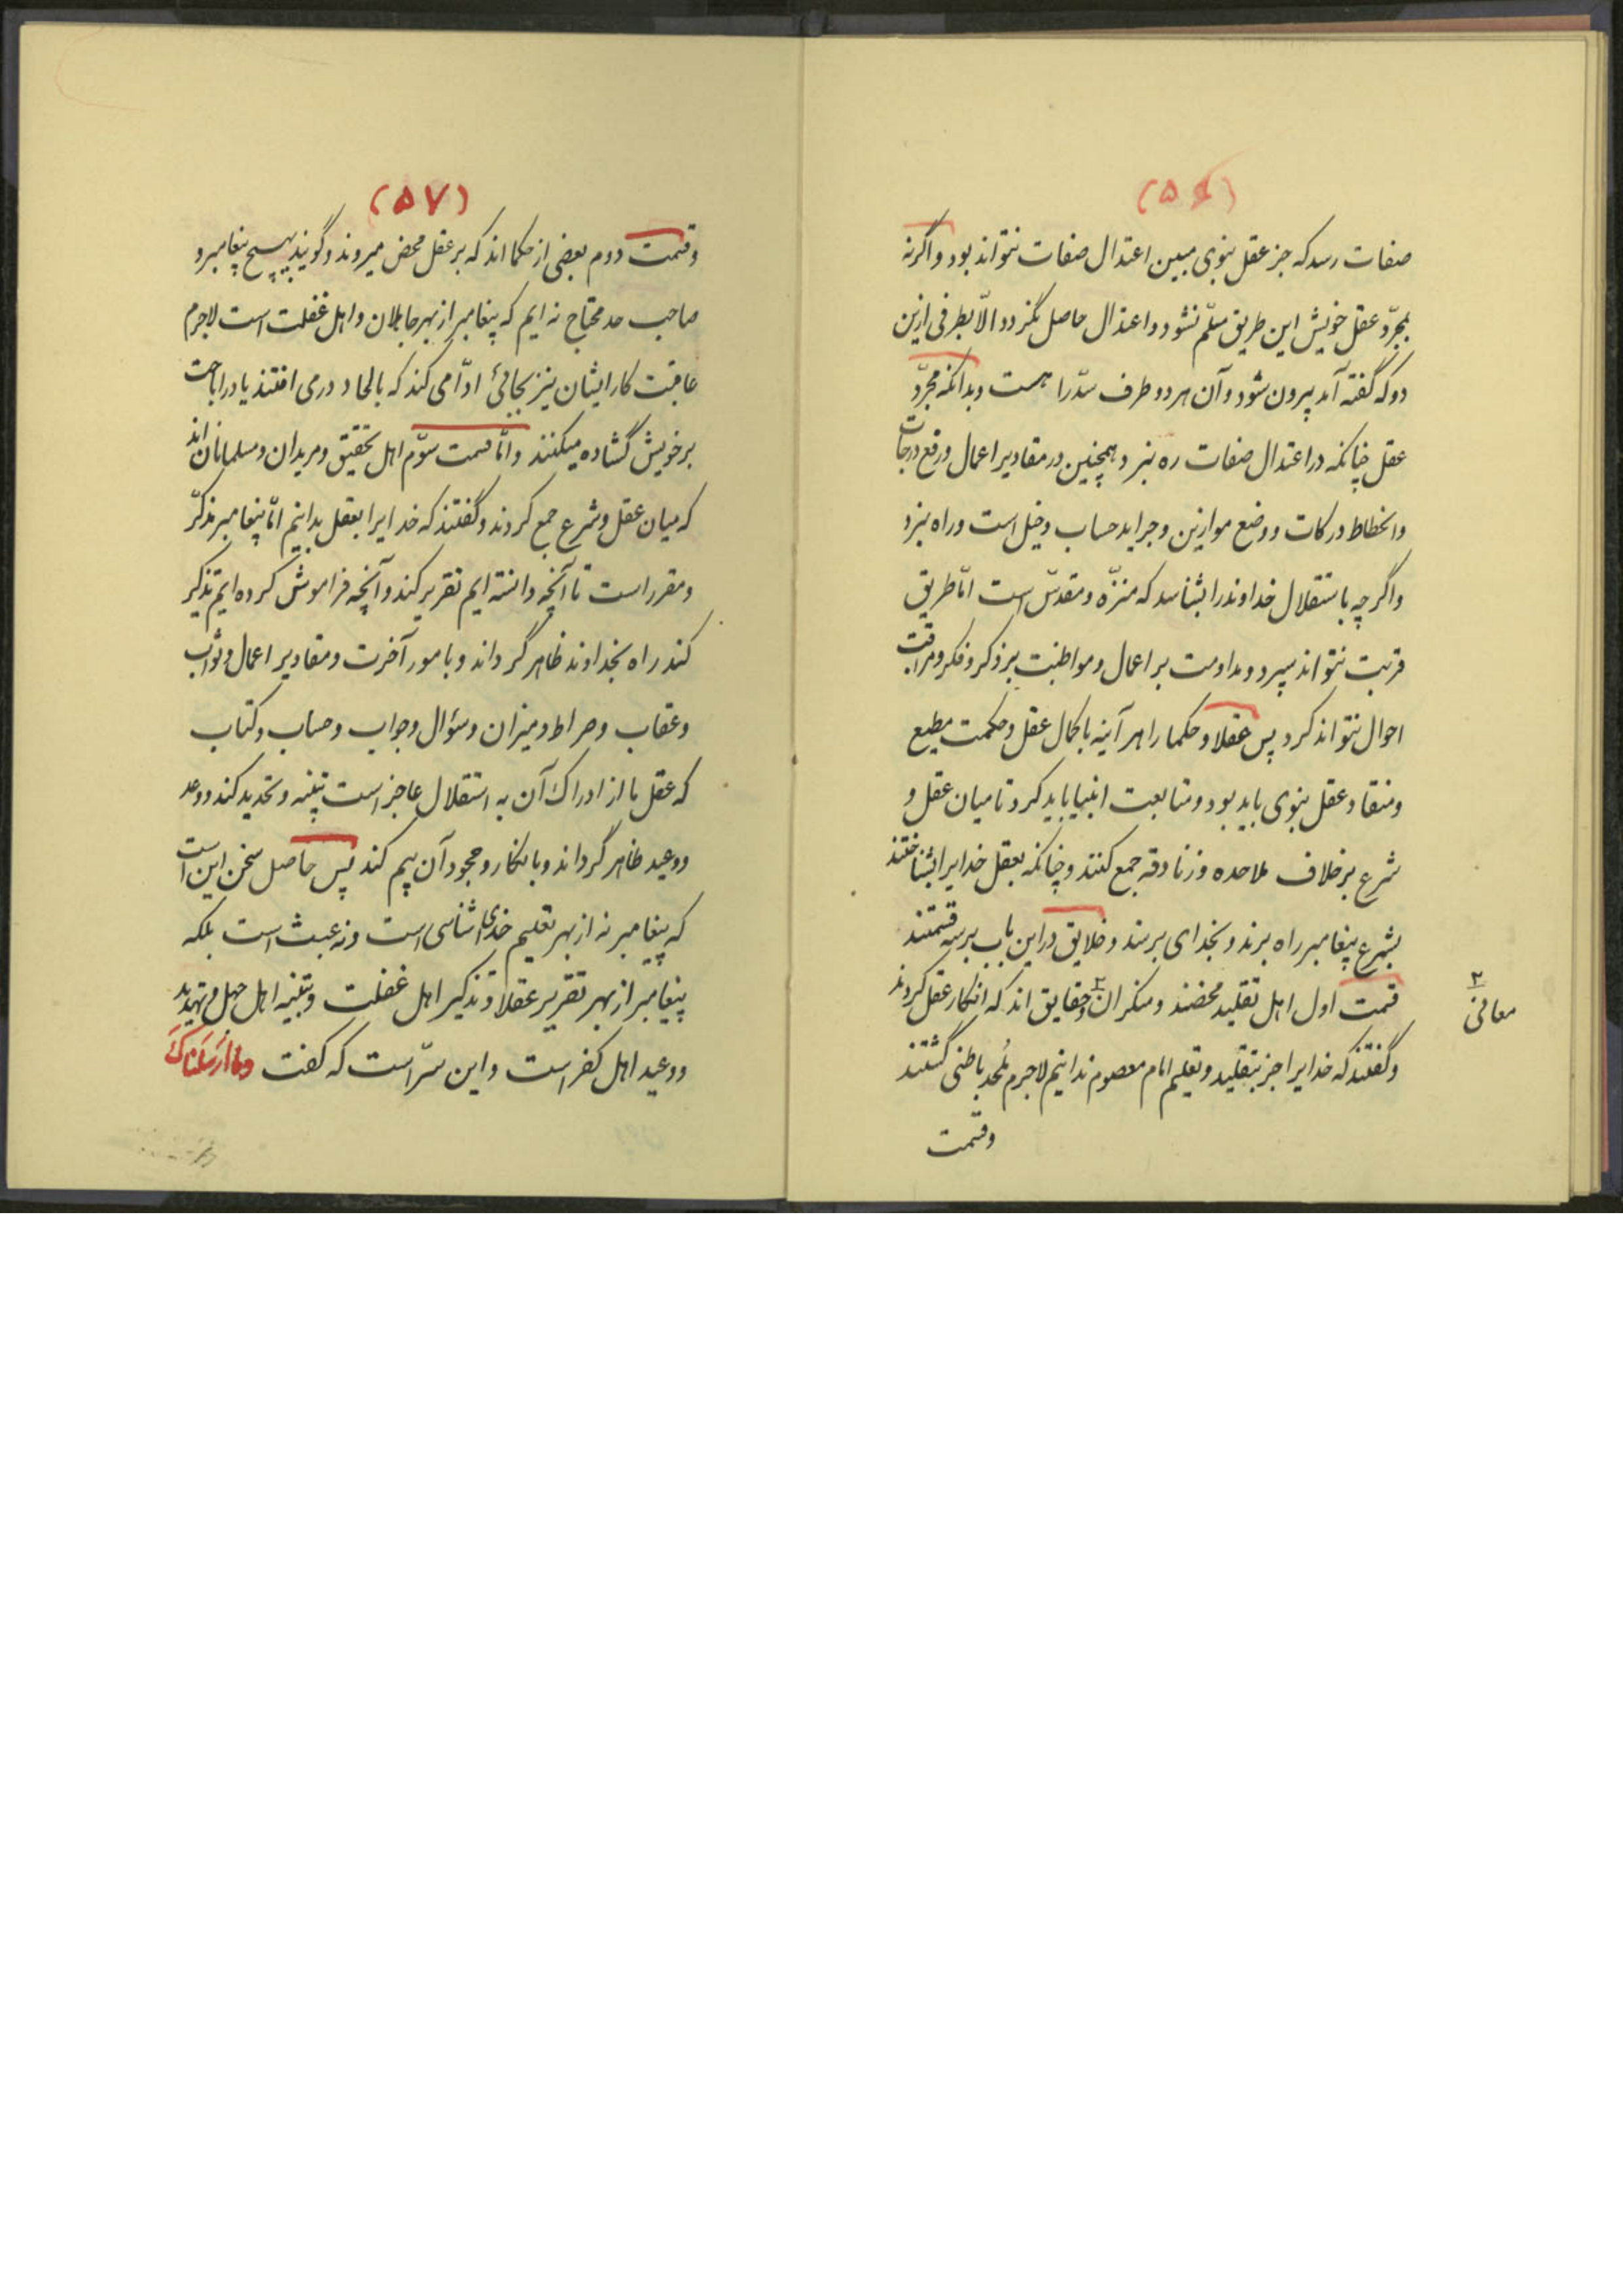 (۵۶)
صفات رسد که جز عقل نبوی مبین اعتدال صفات نتواند بود واگرنه
بمجرّد عقل خویش این طریق مسلّم نشود و اعتدال حاصل نگردد الّا بطرفی ازین
دو که گفته آمد بیرون شود و آن هر دو طرف سدّ راهست وبدانکه مجرّد
عقل چنانکه در اعتدال صفات ره نبرد وهمچنین در مقادیر اعمال ورفع درجات
وانحطاط درکات ووضع موازین وجراید حساب دخیل است وراه نبرد
واگرچه باستقلال خداوند را بشناسد که منزّه ومقدّس است امّا طریق
قربت نتواند سپرد ومداومت بر اعمال ومواظبت بر ذکر وفکر ومراقبت
احوال نتواند کرد پس عقلا وحکما را هر آینه با کمال عقل وحکمت مطیع
ومنقاد عقل نبوی باید بود ومتابعت انبیا باید کرد تا میان عقل و
شرع بر خلاف ملاحده وزنادقه جمع کنند وچنانکه بعقل خدایرا بشناختند
بشرع پیغامبر راه برند وبخدای برسند وخلایق در این باب بر سه قسمتند
قسمت اول اهل تقلید محضند ومنکران ۲ وحقایق اند که انکار عقل کردند
۲
معانی
وگفتند که خدایرا جز بتقلید وتعلیم امام معصوم ندانیم لاجرم مُلحد باطنی گشتند
وقسمت
(۵۷)
وقسمت دوم بعضی از حکما اند که بر عقل محض میروند وگویند بهیچ پیغامبر و
صاحب حد محتاج نه ایم که پیغامبر از بهر جاهلان واهل غفلت است لاجرم
عاقبت کار ایشان نیز بجائی ادّا می کند که بالحاد در می افتند یا در اباحت
بر خویش گشاده میکنند وامّا قسمت سوّم اهل تحقیق ومریدان ومسلمانان اند
که میان عقل وشرع جمع کردند وگفتند که خدایرا بعقل بدانیم امّا پیغامبر مذکّر
ومقرر است تا آنچه دانسته ایم تقریر کند وآنچه فراموش کرده ایم تذکیر
کند راه بخداوند ظاهر گرداند وبامور آخرت ومقادیر اعمال وثواب
وعقاب وصراط ومیزان وسؤال وجواب وحساب وکتاب
که عقل ما از ادراک آن به استقلال عاجز است تنبیه وتحدید کند ووعد
ووعید ظاهر گرداند وبانکار وجحود آن بیم کند پس حاصل سخن این است
که پیغامبر نه از بهر تعلیم خدای شناسی است ونه عبث است بلکه
پیغامبر از بهر تقریر عقلا وتذکیر اهل غفلت وتنبیه اهل جهل وتهدید
ووعید اهل کفر است واین سرّ است که گفت وما أَرسَلناكَ